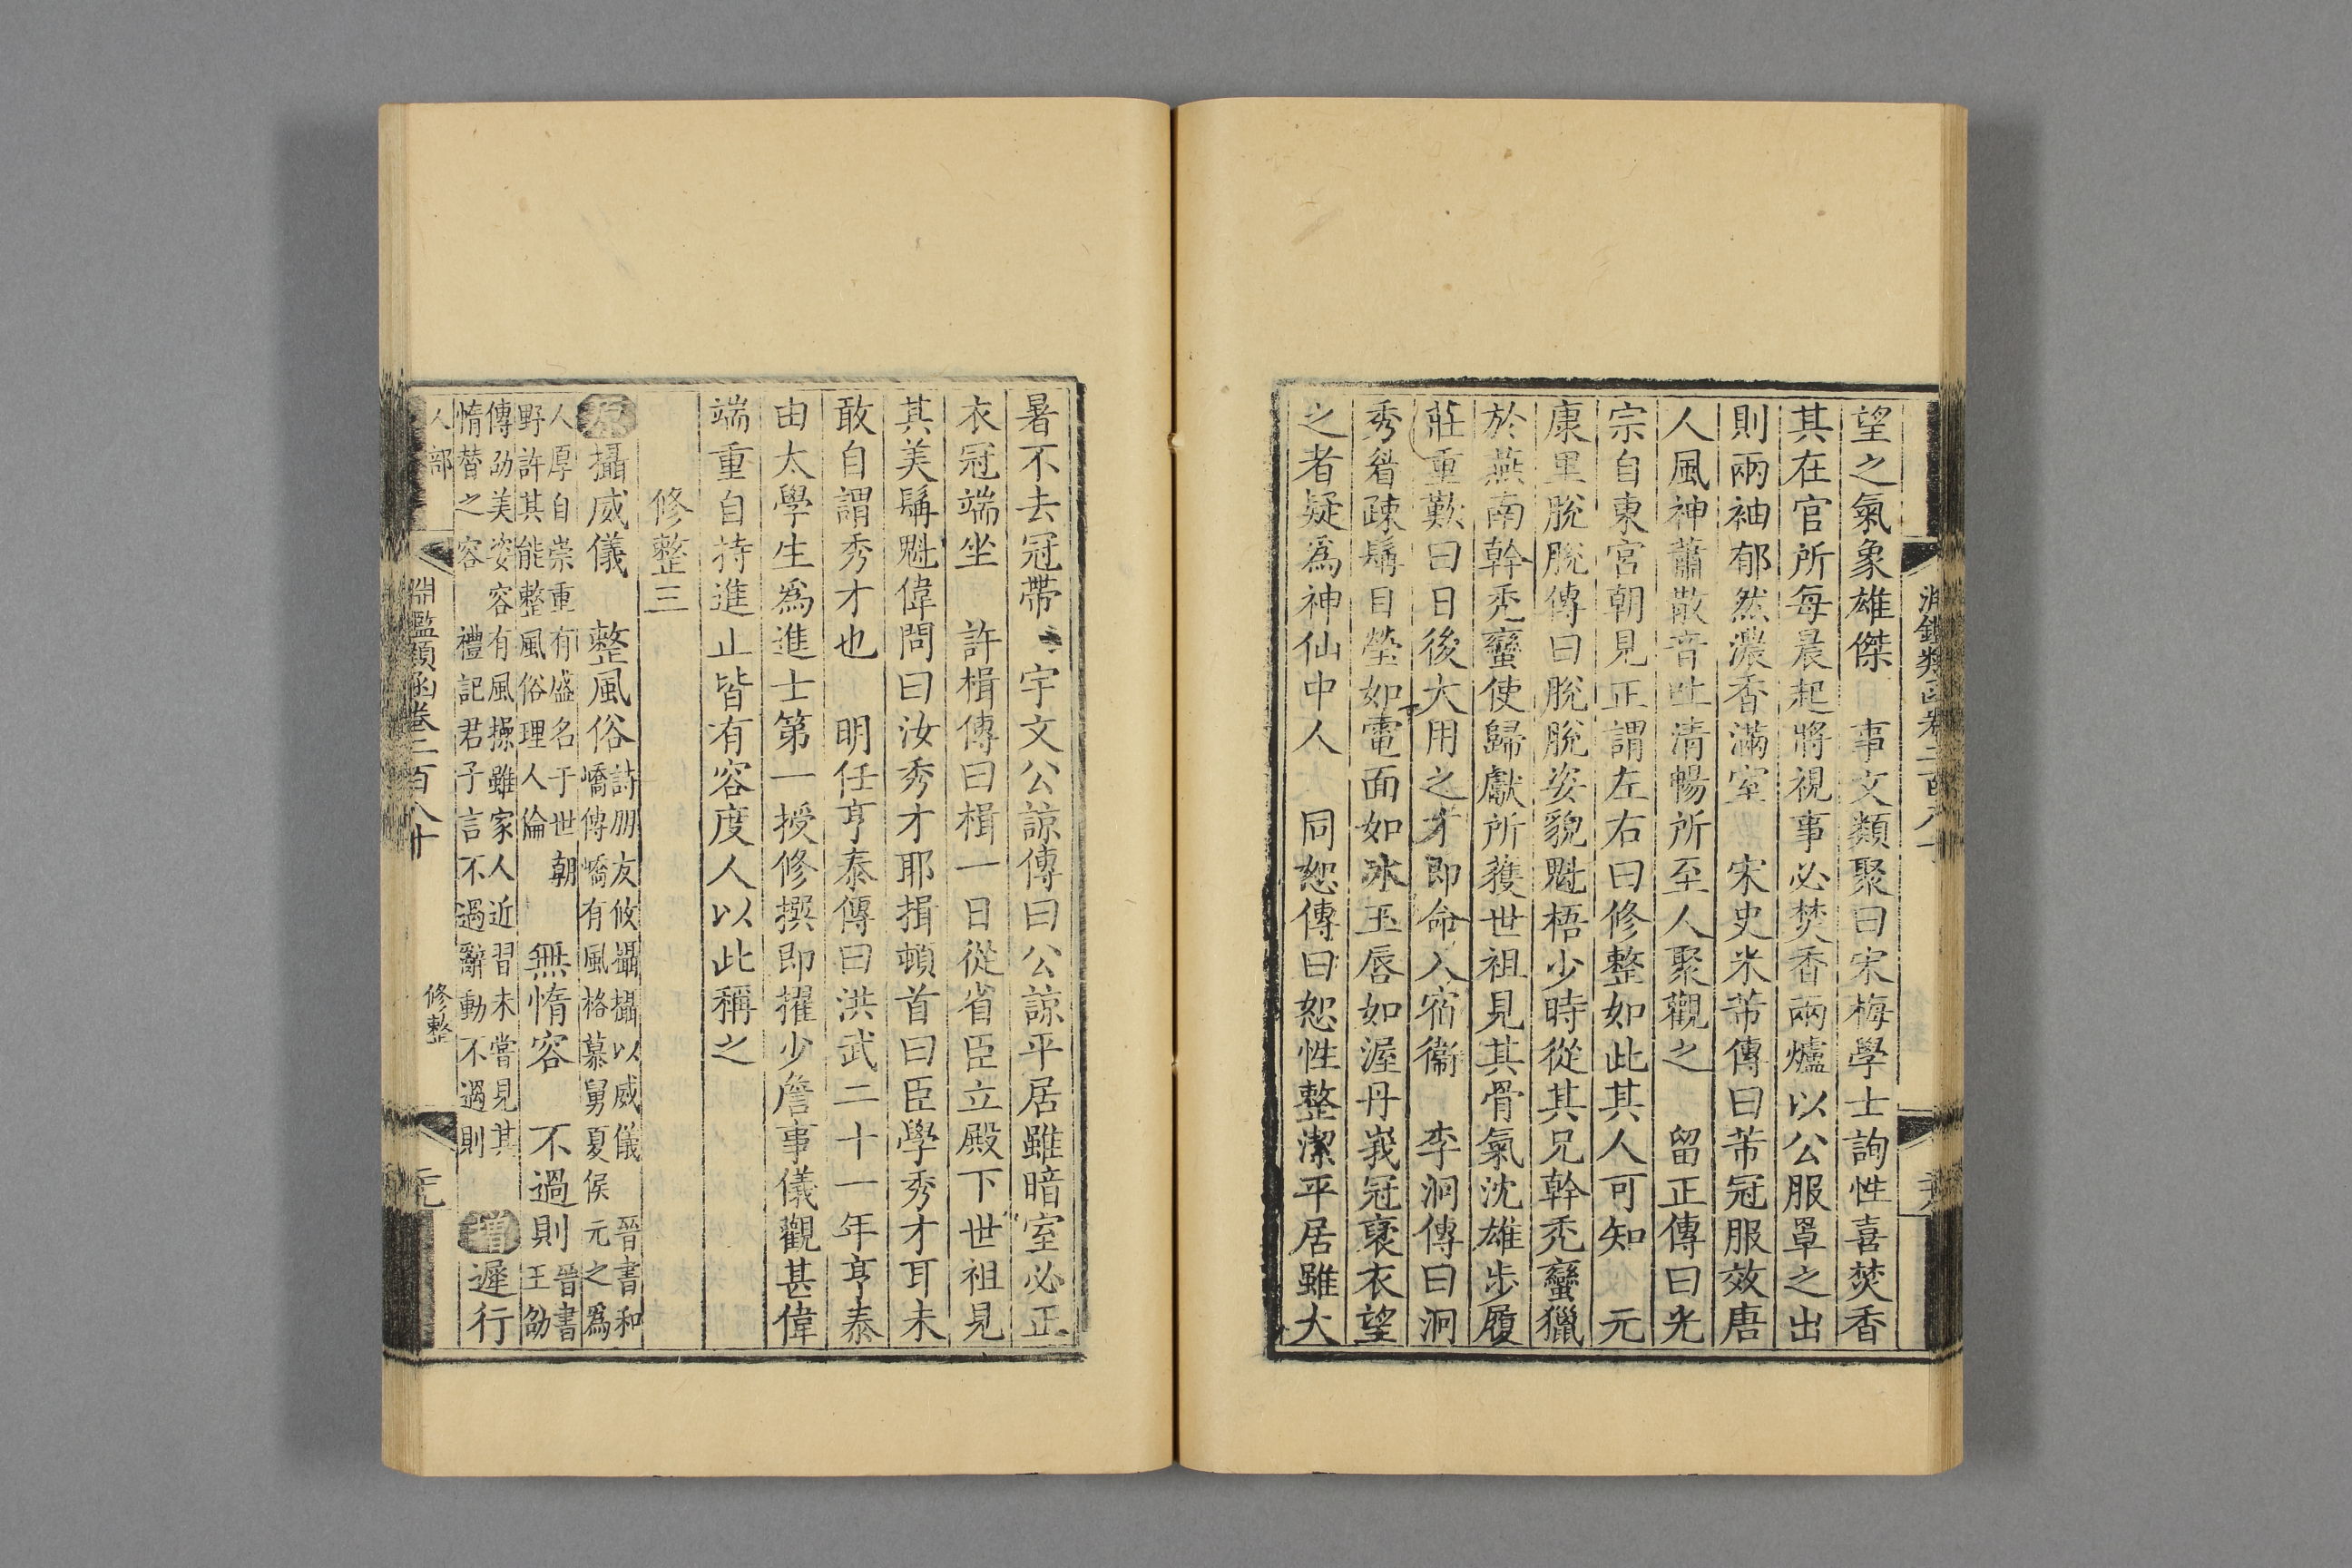 望之氣象雄傑　事文類聚曰宋梅學士詢性喜焚香
其在官所每晨起將視事必焚香兩爐以公服罩之出
則兩袖郁然濃香滿室　宋史米芾傳曰芾冠服效唐
人風神蕭散音吐清暢所至人聚觀之　留正傳曰光
宗自東宮朝見正謂左右曰修整如此其人可知　元
康里脫脫傳曰脫脫姿貌魁梧少時從其兄幹禿蠻獵
於燕南幹禿蠻使歸獻所獲世祖見其骨氣沈雄步履
莊重歎曰日後大用之才即命入宿衞　李泂傳曰泂
秀眉疎髯目瑩如電面如冰玉唇如渥丹峩冠褒衣望
之者疑爲神仙中人　同恕傳曰恕性整潔平居雖大
暑不去冠帶　宇文公諒傳曰公諒平居雖暗室必正
衣冠端坐　許楫傳曰楫一日從省臣立殿下世祖見
其美髯魁偉問曰汝秀才耶楫頓首曰臣學秀才耳未
敢自謂秀才也　明任亨泰傳曰洪武二十一年亨泰
由太學生爲進士第一授修撰即擢少詹事儀觀甚偉
端重自持進止皆有容度人以此稱之
修整三
原攝威儀　整風俗
詩朋友攸攝攝以威儀　晉書和
嶠傳嶠有風格慕舅夏侯元之爲
人厚自崇重有盛名于世朝
野許其能整風俗理人倫
無惰容　不過則
晉書
王劭
傳劭美姿容有風操雖家人近習未嘗見其
惰替之容　禮記君子言不過辭動不過則
增遲行
人部
淵鑑類函卷二百八十
修整